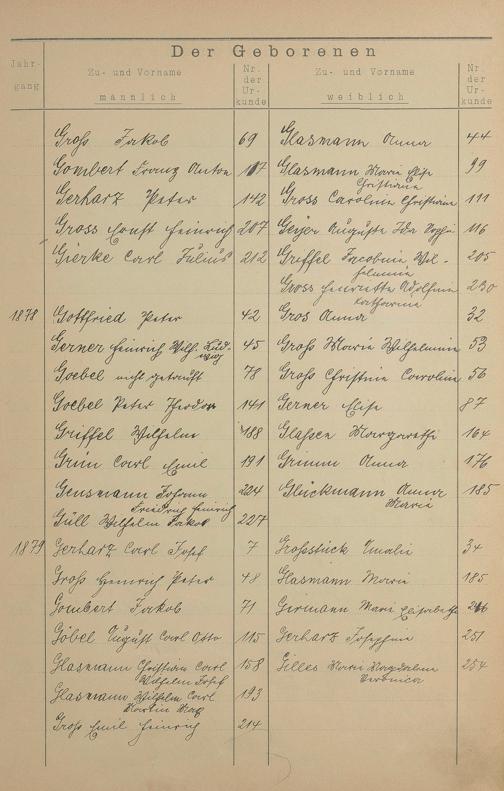 Der Geborenen
Jahr-
gang
Zu- und Vorname
männlich
Nr.
der
Ur-
kunde
Zu- und Vorname
weiblich
Nr.
der
Ur-
kunde
Groß Jakob 69 Glasmann Anna 44
Gombert Franz Anton 107 Glasmann Maria Elise 99
Christiane
Gerharz Peter 142 Gross Caroline Christiane 111
Gross Ernst Heinrich 207 Geyer Auguste Ida Sophie 116
Gierke Carl Julius 212 Griffel Jacobine Wil- 205
helmine
Gross Henriette Adolfine 230
Katharina
1878 Gottfried Peter 42 Gros Anna 32
Gerner Heinrich Wilh. Lud- 45 Groß Maria Wilhelmine 53
wig
Goebel nicht getauft 78 Groß Christine Caroline 56
Goebel Peter Theodor 141 Gerner Elise 87
Griffel Wilhelm 188 Glassen Margarethe 164
Grün Carl Emil 191 Grimm Anna 176
Gensmann Johann 224 Glückmann Anna 185
Friedrich Heinrich Maria
Güll Wilhelm Jakob 227
1879 Gerharz Carl Josef 7 Großstück Amalie 34
Groß Heinrich Peter 48 Glasmann Maria 185
Gombert Jakob 71 Germann Maria Elisabeth 246
Göbel August Carl Otto 115 Gerharz Josephine 251
Glasmann Christian Carl 158 Gilles Maria Magdalena 254
Wilhelm Josef Veronica
Glasmann Wilhelm Carl 193
Martin
Groß Emil Heinrich 214